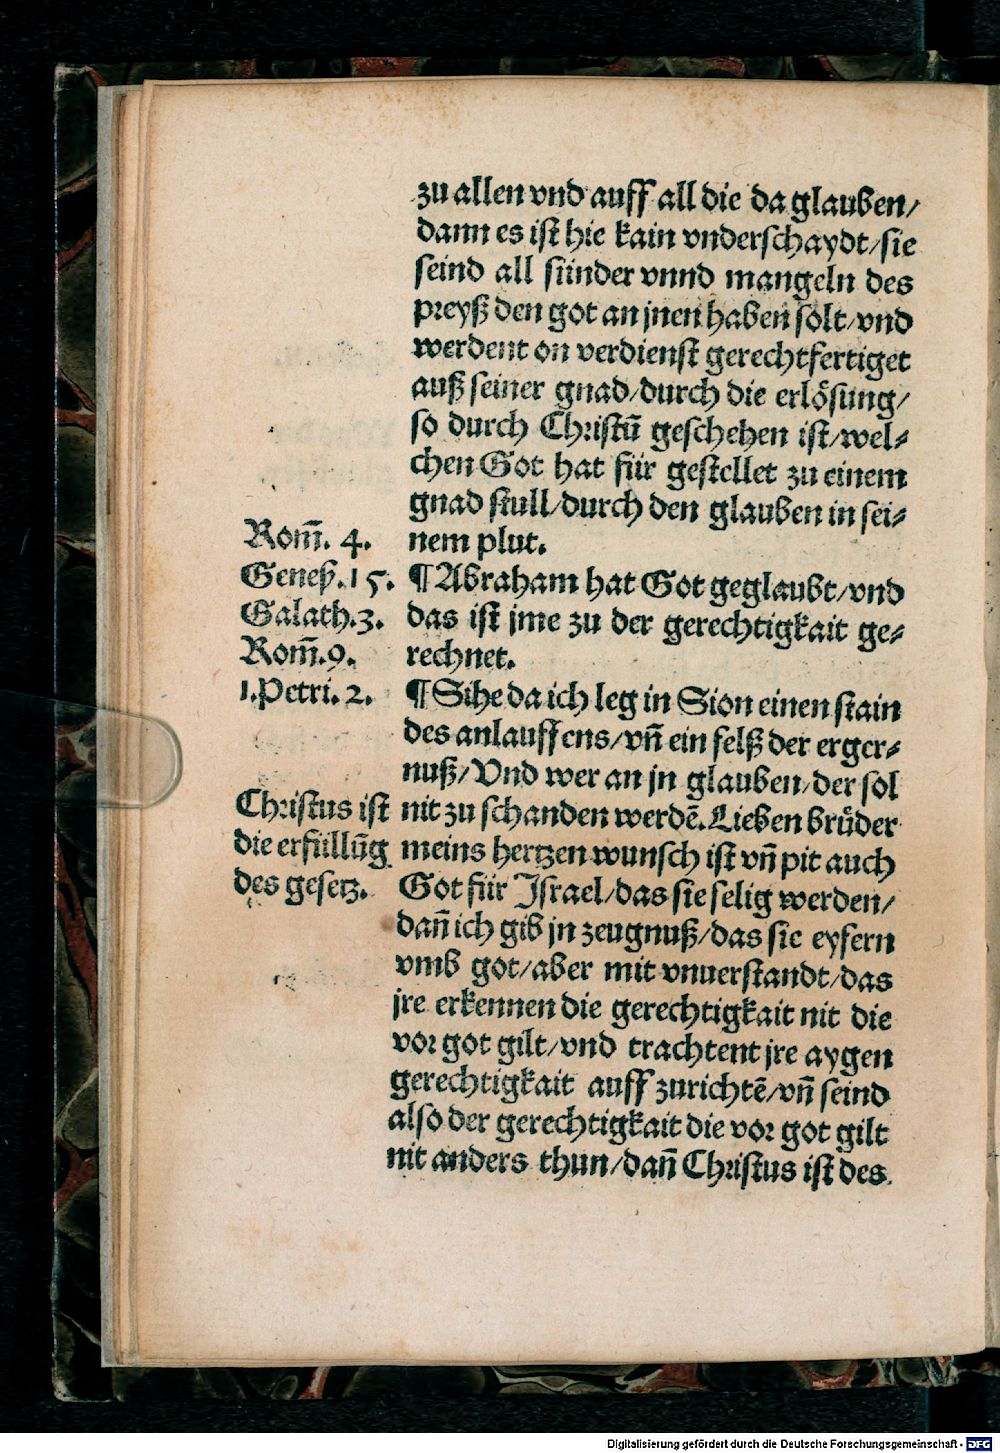 zu allen vnd auff all die da glauben/
dann es ist hie kain vnderschaydt/sie
seind all sünder vnnd mangeln des
preyß den got an jnen haben solt/vnd
werdent on verdienst gerechtfertiget
auß seiner gnad/durch die erlösung/
so durch Christū geschehen ist/wel⸗
chen Got hat für gestellet zu einem
gnad stull/durch den glauben in sei⸗
nem plut.
Rom̄. 4.
Geneß.15.
Galath.3.
Rom̄.9.
1.Petri.2.
¶ Abraham hat Got geglaubt/vnd
das ist jme zu der gerechtigkait ge⸗
rechnet.
¶ Sihe da ich leg in Sion einen stain
des anlauffens/vn̄ ein felß der erger⸗
nuß/Vnd wer an jn glauben/der sol
nit zu schanden werdē.Lieben brůder
meins hertzen wunsch ist vn̄ pit auch
Got für Israel/das sie selig werden/
Christus ist
die erfüllūg
des gesetz.
dan̄ ich gib jn zeugnuß/das sie eyfern
vmb got/aber mit vnuerstandt/das
jre erkennen die gerechtigkait nit die
vor got gilt/vnd trachtent jre aygen
gerechtigkait auff zurichtē/vn̄ seind
also der gerechtigkait die vor got gilt
nit anders thun/dan̄ Christus ist des
Digitalisierung gefördert durch die Deutsche Forschungsgemeinschaft - DFG